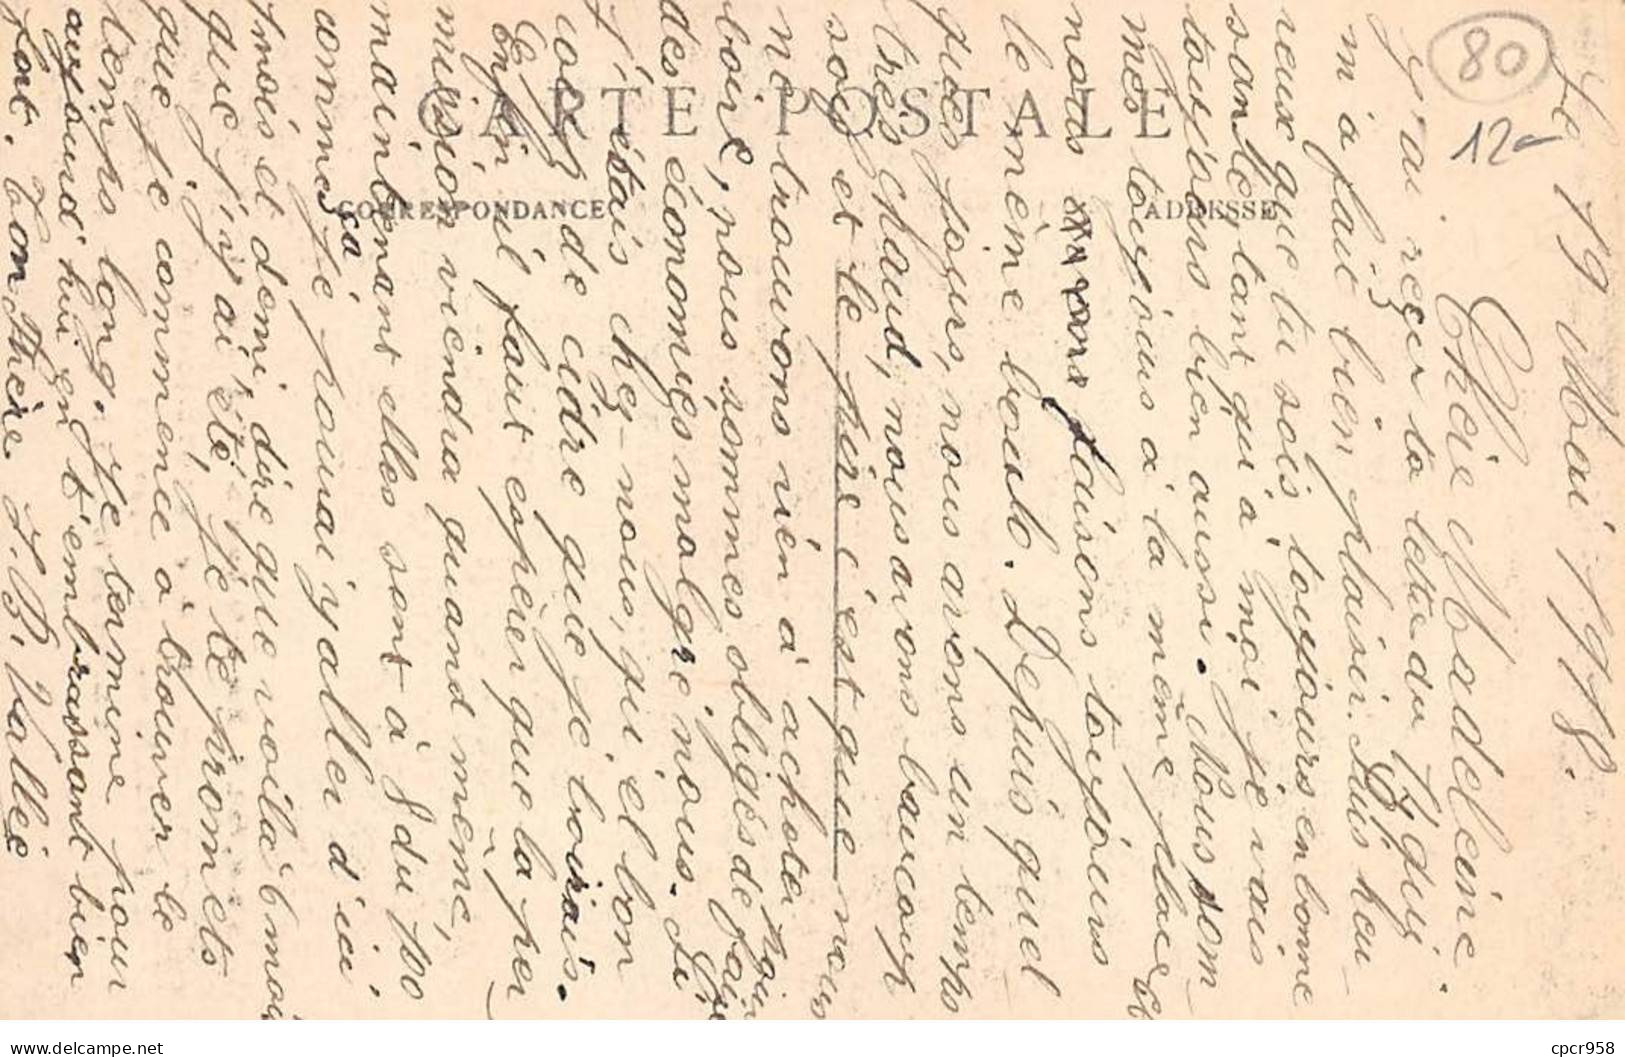 80
12-
CARTE POSTALE
CORRESPONDANCE
ADRESSE
Le 19 Mai 1918.
Chère Madeleine.
J'ai reçu ta lettre du 7 qui
m'a fait bien plaisir. Suis heu
reux que tu sois toujours en bonne
santé, tant qu'à moi je vais
toujours bien aussi. Nous som
mes toujours à la même place et
nous faisons toujours
le même boulo. Depuis quel
ques jours, nous avons un temps
très chaud, nous avons baucoup
soif et le pire c'est que nous
ne trouvons rien à acheter pour
boire, nous sommes obligés de faire
des économies malgré nous. Si
j'étais chez-nous, qui el bon
coup de cidre que je boirais.
Enfin il faut espérer que la per
mission viendra quand même,
maintenant elles sont à 8 du %
comme ça je pourai y aller d'ici
1 mois et demi, dire que voilà 6 mois
que j'y ai été, je te promets
que je commence à trouver le
temps long. Je termine pour
aujourd'hui en t'embrassant bien
fort. Ton Frère J.B. Vallée
cpcr958